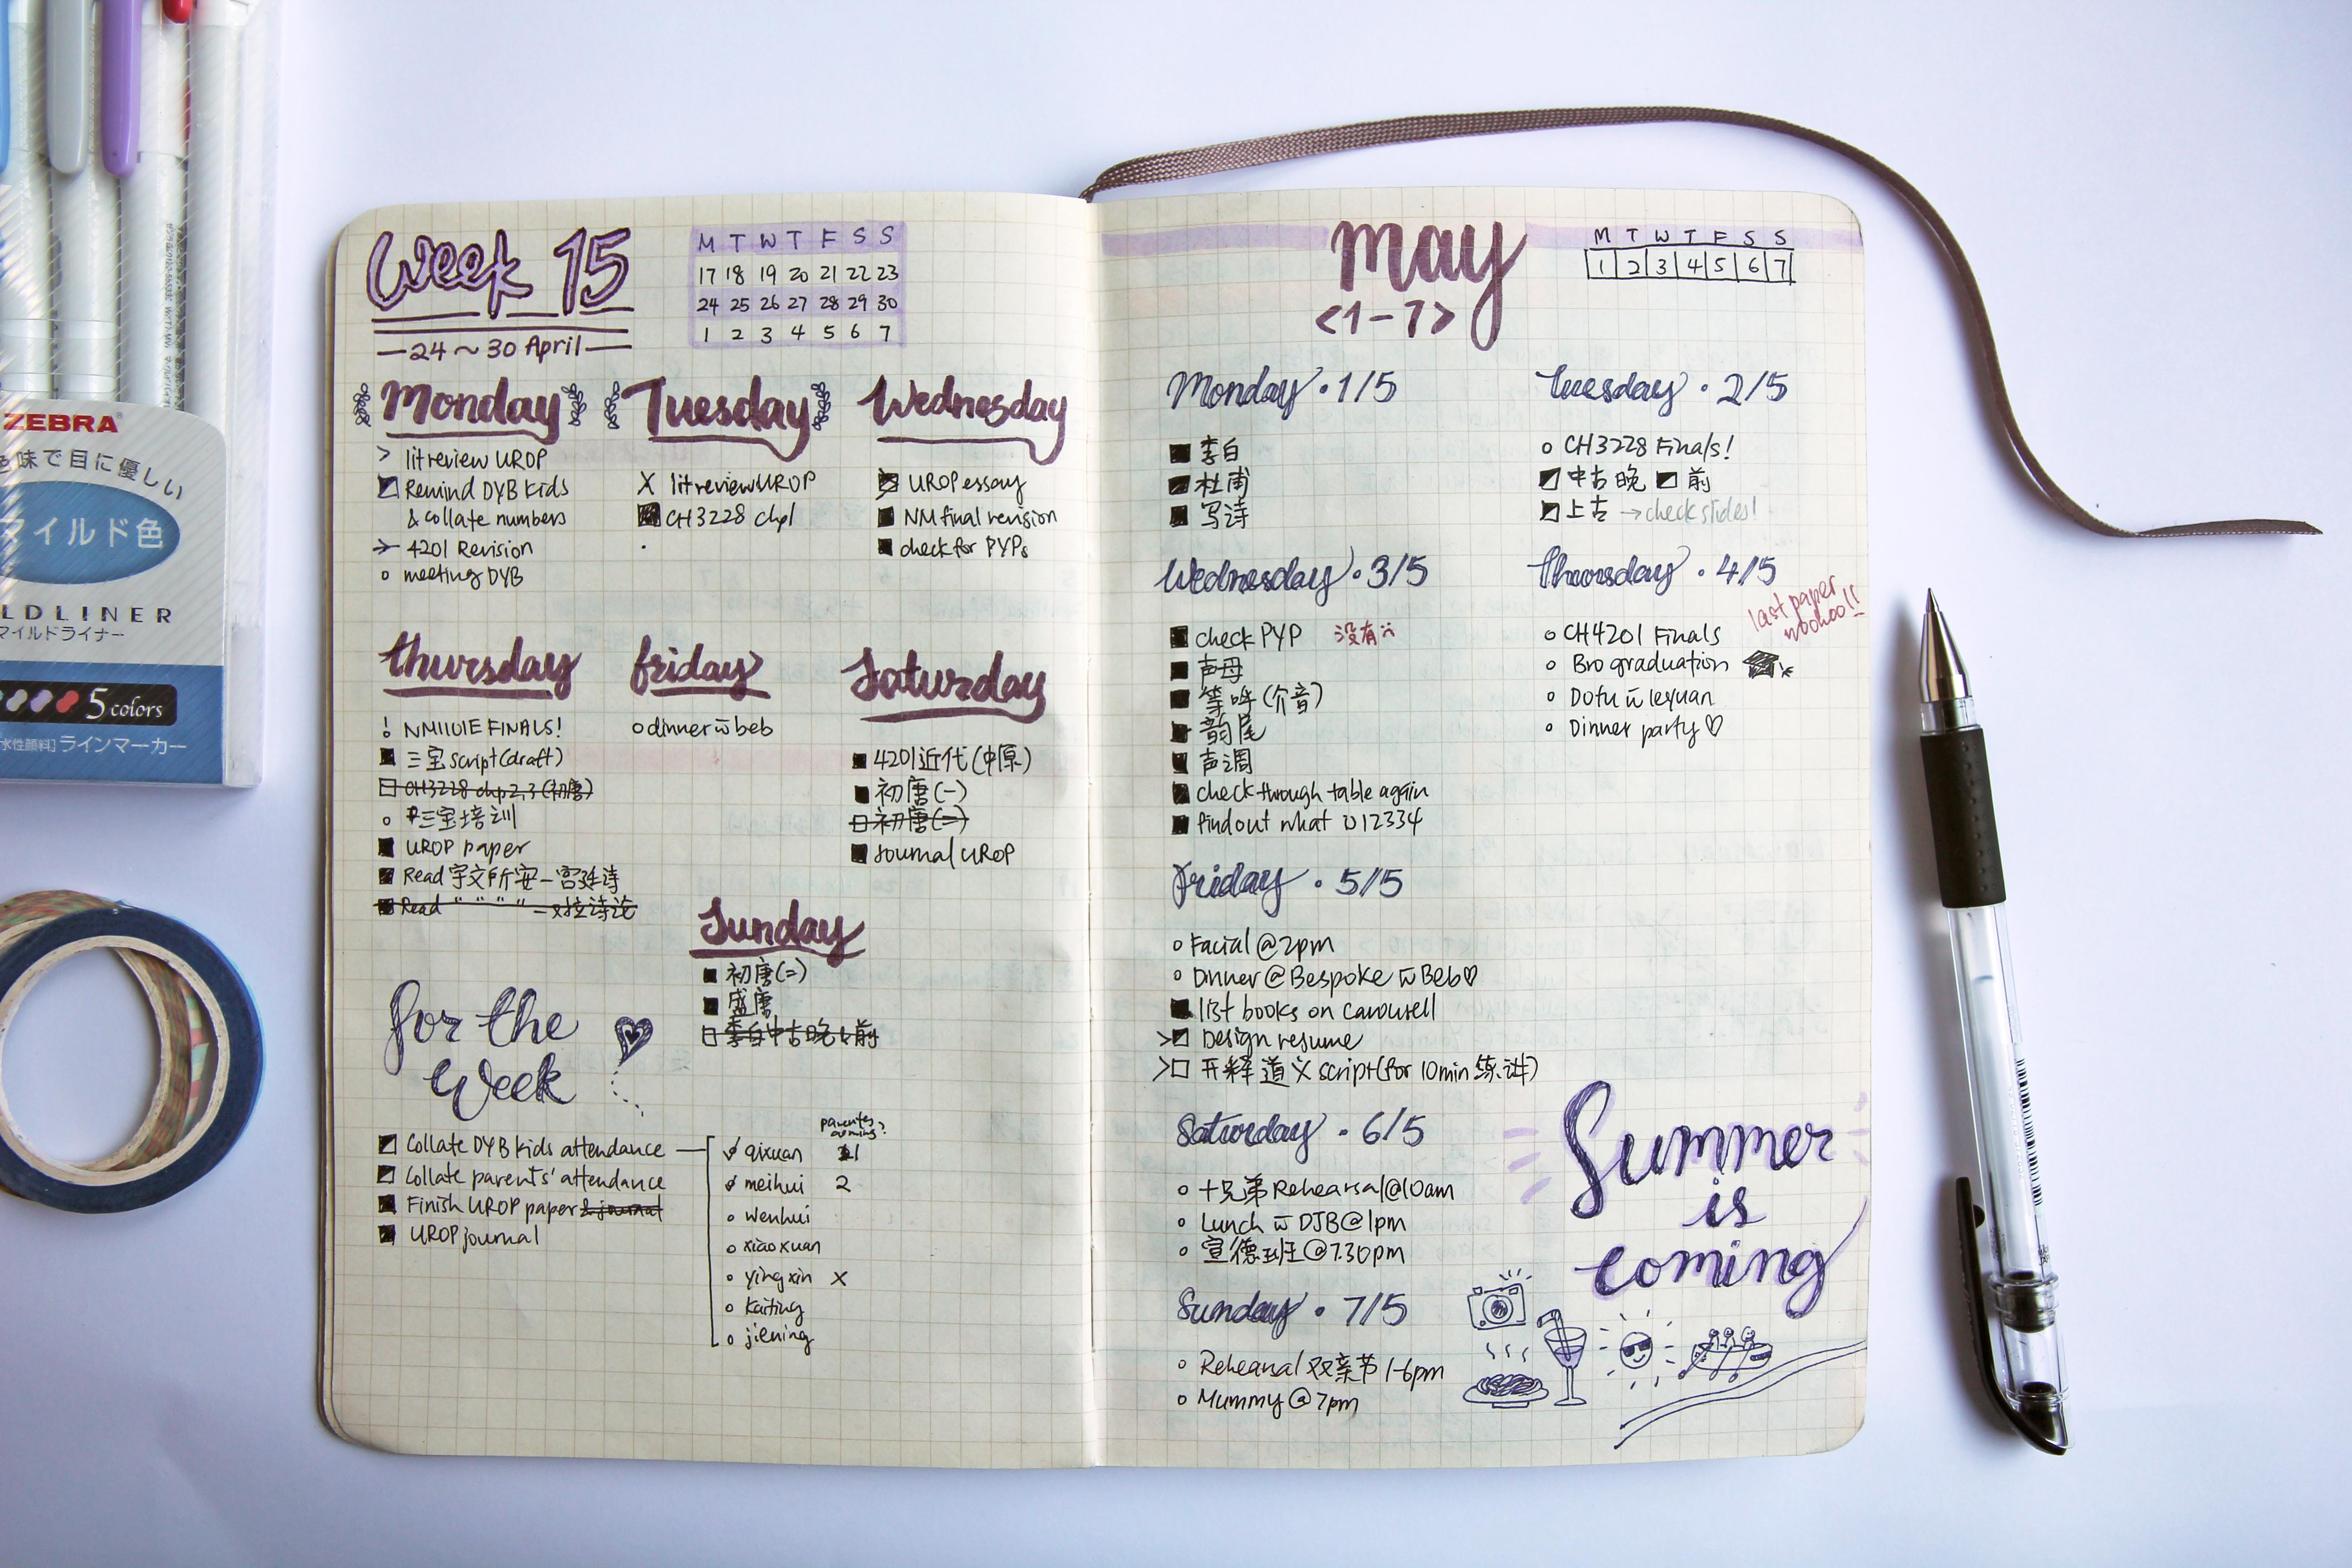 Week 15
24 ~ 30 April
M T W T F S S
17 18 19 20 21 22 23
24 25 26 27 28 29 30
1 2 3 4 5 6 7
Monday
> lit review UROP
Remind DYB kids
& collate numbers
4201 Revision
meeting DYB
Tuesday
X lit review UROP
CH3228 chp1
Wednesday
UROP essay
NM final revision
check for PYPs
Thursday
! NM1101E FINALS!
三宝 script (draft)
CH3228 chp 2,3 (初唐)
三宝培训
UROP paper
Read 宇文所安 - 宫廷诗
Read " " " " -
Friday
dinner w beb
Saturday
4201 近代 (中原)
初唐 (一)
初唐 (二)
Journal UROP
Sunday
初唐 (二)
盛唐
李白 中古 晚 前
for the
week
Collate DYB kids attendance
Collate parents' attendance
Finish UROP paper & journal
UROP journal
parents coming?
qixuan 1
meihui 2
wenhui
xiaoxuan
yingxin X
kaiting
jiening
may
<1-7>
M T W T F S S
1 2 3 4 5 6 7
Monday · 1/5
李白
杜甫
写诗
Tuesday · 2/5
CH3228 Finals!
中古 晚 前
上古 → check slides!
Wednesday · 3/5
check PYP 没有
声母
等呼 (介音)
韵尾
声调
check through table again
find out what is 12334
Thursday · 4/5
last paper
woohoo!!
CH4201 Finals
Bro graduation
Dofu w leyuan
Dinner party ♡
Friday · 5/5
Facial @ 2pm
Dinner @ Bespoke w Beb ♡
list books on carousell
> Design resume
> 开释道义 script (for 10min 练讲)
Saturday · 6/5
十兄弟 Rehearsal @ 10am
Lunch w DJB @ 1pm
宣德班 @ 7.30pm
Sunday · 7/5
Rehearsal 双亲节 1-6pm
Mummy @ 7pm
Summer
is
coming
ZEBRA
味で目に優しい
マイルド色
LDLINER
マイルドライナー
5 colors
水性顔料] ラインマーカー